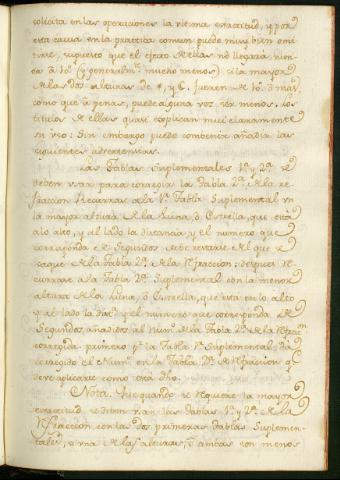 solicita en las operaciones la ultima exactitud, y por
esta causa en la practica comun puede muy bien omi
tirse, supuesto que el efecto de ellas no llegará nun
ca á 10" (y generalmte mucho menos) si la mayor
de las dos alturas de *, y C. fueren de 10.° ó mas
como que á penas, puede alguna vez ser menos. Los
titulos de ellas quasi explican mui claramente
su uso: Sin embargo puedo combenir añadir las
siguientes advertencias.
Las Tablas Suplementales 1ª y 2ª se
deben usar para corregir la Tabla 2ª de la re
fraccion. Recurrase á la 1ª Tabla Suplemental con
la mayor altura de la Luna, ó Estrella, que está
alo alto, y al lado la distancia, y el numero que
corresponda de Segundos debe restarse del que se
saque de la Tabla 2ª de la Refraccion: despues Re
currase á la Tabla 2ª Suplemental con la menor
altura de la Luna, ó Estrella, que esta en lo alto
y al lado la dista y el numero que corresponda de
Segundos añadase al Numo de la Tabla 2ª de la Refraccon
corregida primero pr la Tabla 1ª Suplemental, y
corregido el Numo en la Tabla 2ª de Refraccion qe
debe aplicarse como está dho.
Nota. Que quando se requiere la mayor
exactitud se deben usar las Tablas 1ª y 2ª de la
Refraccion, con las dos primeras tablas Suplemen-
tales, si una de las alturas, ó ambas son menos